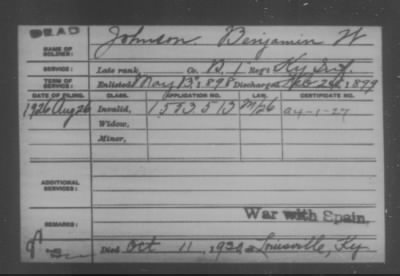 DEAD
NAME OF SOLDIER: Johnson Benjamin W
SERVICE: Late rank, Co. B, 1 Reg't Ky Inf.
TERM OF SERVICE: Enlisted May 13, 1898 Discharged Feb 24, 1899
DATE OF FILING. CLASS. APPLICATION NO. LAW. CERTIFICATE NO.
1926 Aug 26 Invalid, 1553513 M/26 A4-1-27
Widow,
Minor,
ADDITIONAL SERVICES:
War with Spain.
REMARKS:
Died Oct 11, 1930 Louisville, Ky